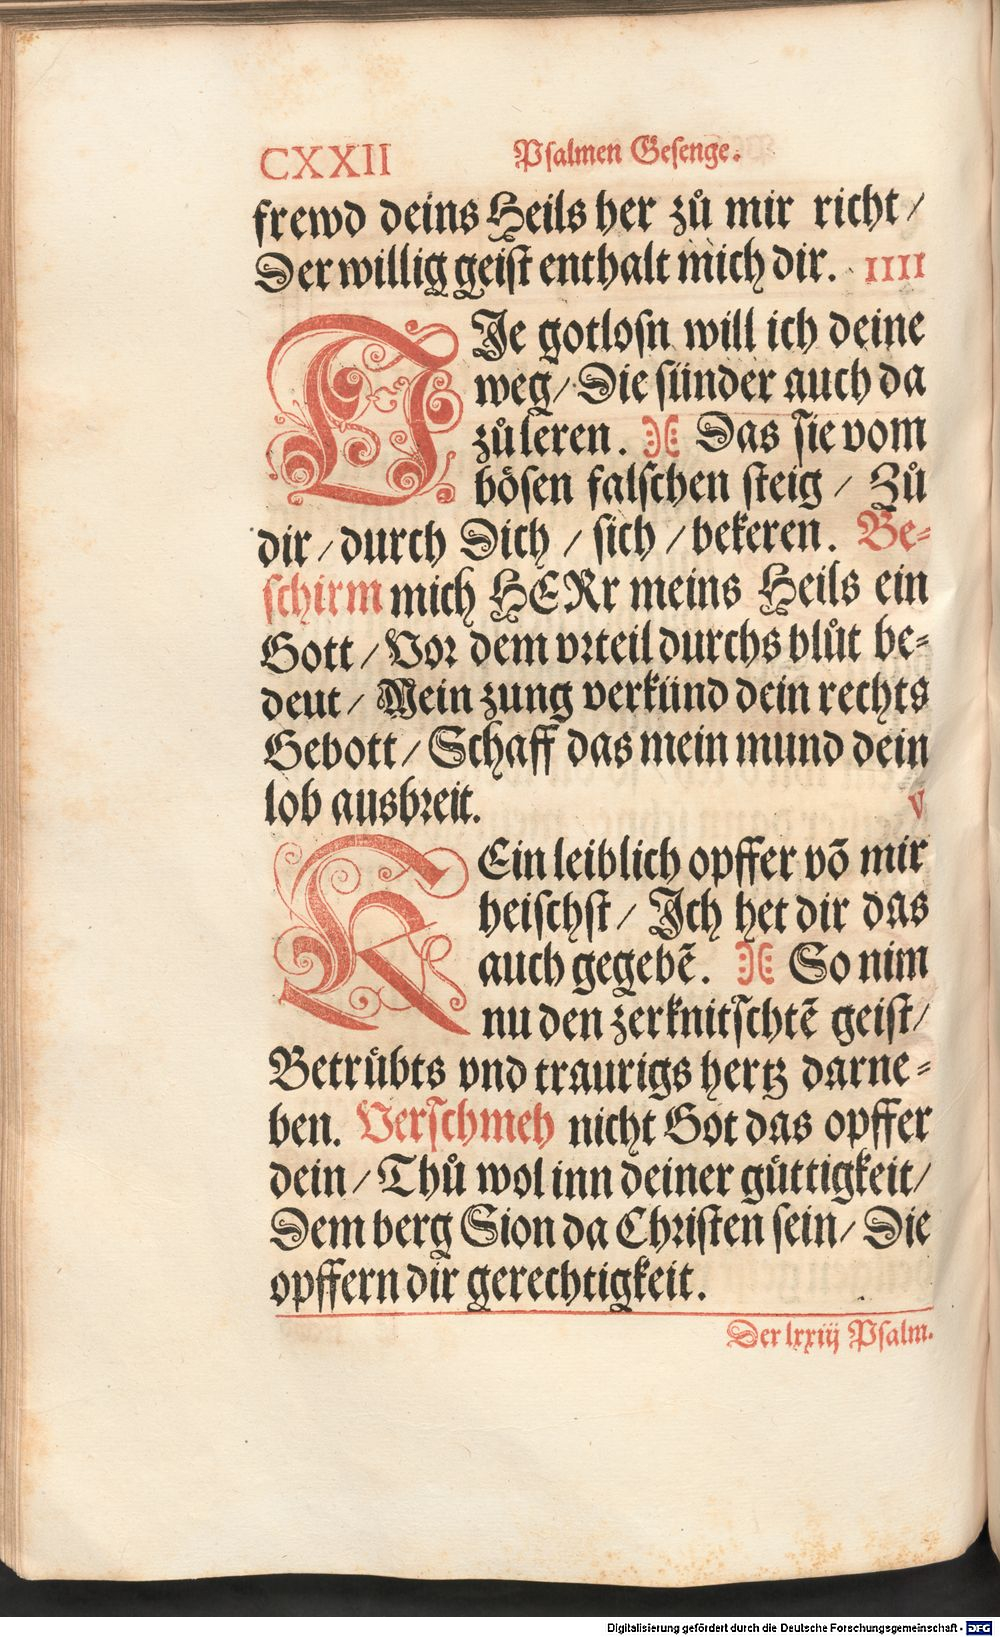 CXXII Psalmen Gesenge.
frewd deins Heils her zů mir richt /
Der willig geist enthalt mich dir. IIII
DIe gotlosn will ich deine
weg / Die sünder auch da
zů leren. Das sie vom
bösen falschen steig / Zů
dir / durch Dich / sich / bekeren. Be-
schirm mich HERr meins Heils ein
Gott / Vor dem vrteil durchs blůt be-
deut / Mein zung verkünd dein rechts
Gebott / Schaff das mein mund dein
lob ausbreit. V
KEin leiblich opffer võ mir
heischst / Ich het dir das
auch gegebẽ. So nim
nu den zerknitschtẽ geist /
Betrůbts vnd traurigs hertz darne-
ben. Verschmeh nicht Got das opffer
dein / Thů wol inn deiner gůttigkeit /
Dem berg Sion da Christen sein / Die
opffern dir gerechtigkeit.
Der lxxiij Psalm.
Digitalisierung gefördert durch die Deutsche Forschungsgemeinschaft - DFG